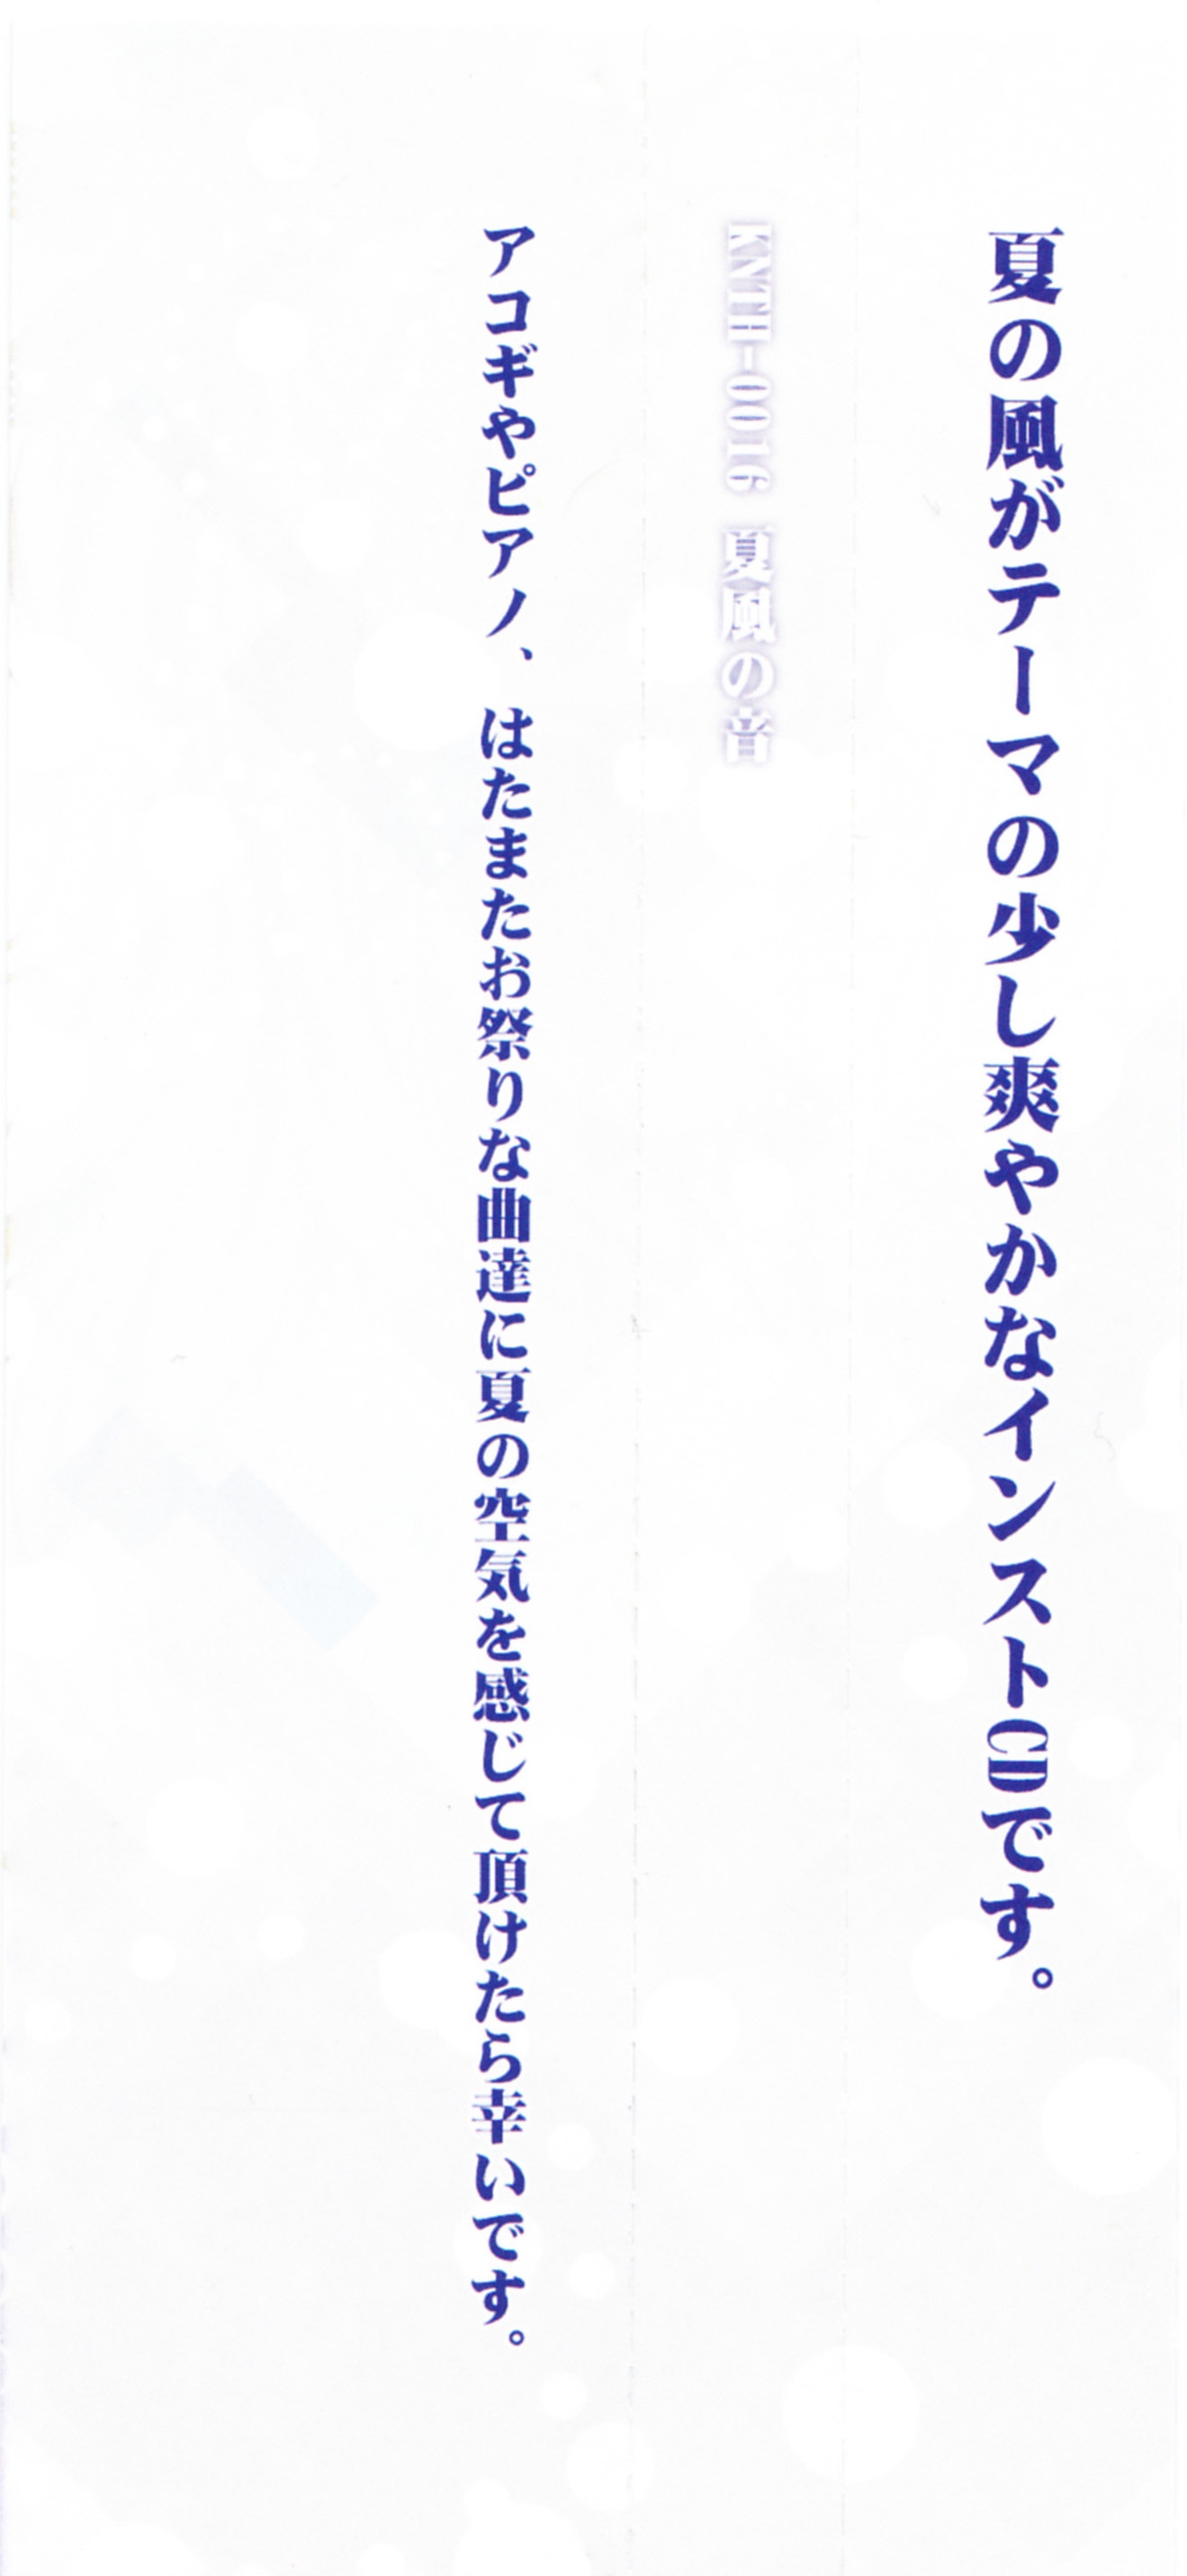 夏の風がテーマの少し爽やかなインストCDです。
KNTH-0016 夏風の音
アコギやピアノ、はたまたお祭りな曲達に夏の空気を感じて頂けたら幸いです。